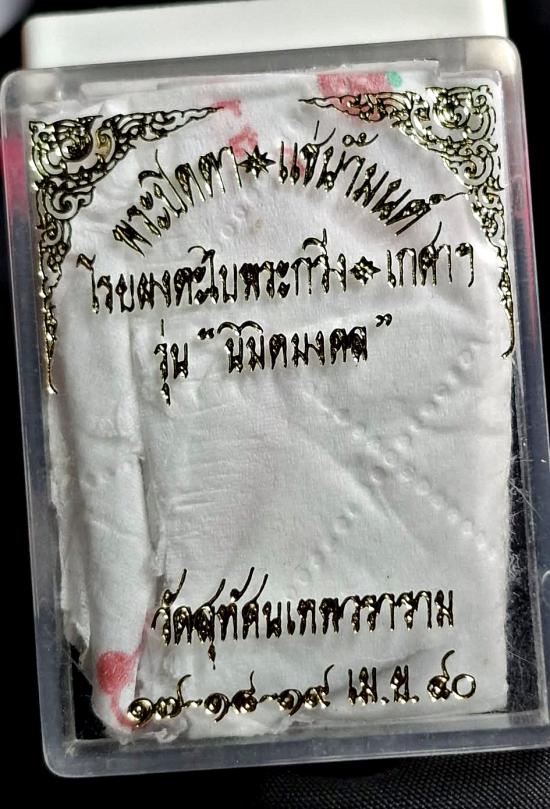 พระปิดตา แช่น้ำมนต์
โรยผงตะไบพระกริ่ง เกศาฯ
รุ่น "นิมิตมงคล"
วัดสุทัศนเทพวราราม
๑๗-๑๘-๑๙ เม.ย. ๔๐